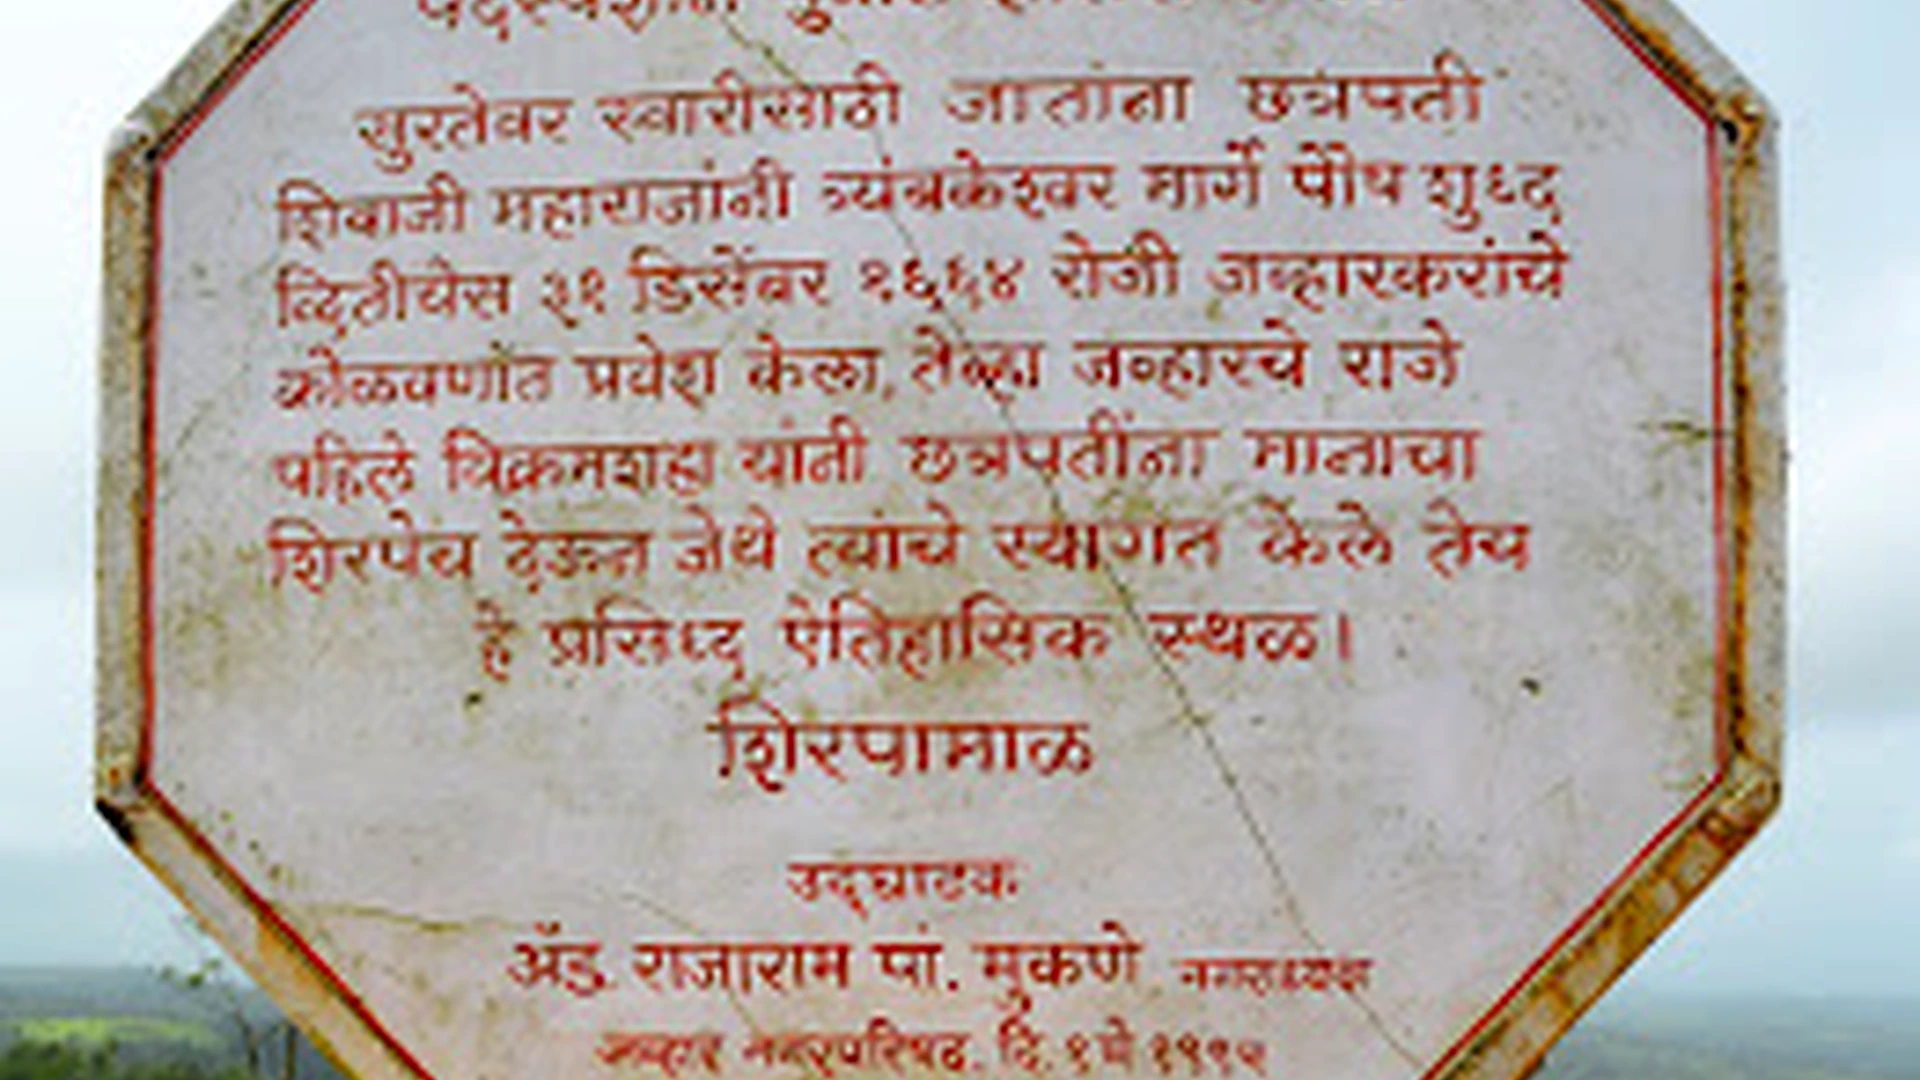 सुरतेवर स्वारीसाठी जातांना छत्रपती
शिवाजी महाराजांनी त्र्यंबकेश्वर मार्गे पौष शुध्द
व्दितीयेस ३१ डिसेंबर १६६४ रोजी जव्हारकरांचे
कोळवणांत प्रवेश केला, तेव्हा जव्हारचे राजे
पहिले विक्रमशहा यांनी छत्रपतींना मानाचा
शिरपेच देऊन जेथे त्यांचे स्वागत केले तेच
हे प्रसिध्द ऐतिहासिक स्थळ।
शिरपामाळ
उद्घाटक
ॲड. राजाराम पां. मुकणे नगराध्यक्ष
जव्हार नगरपरिषद. दि. १ मे १९९५